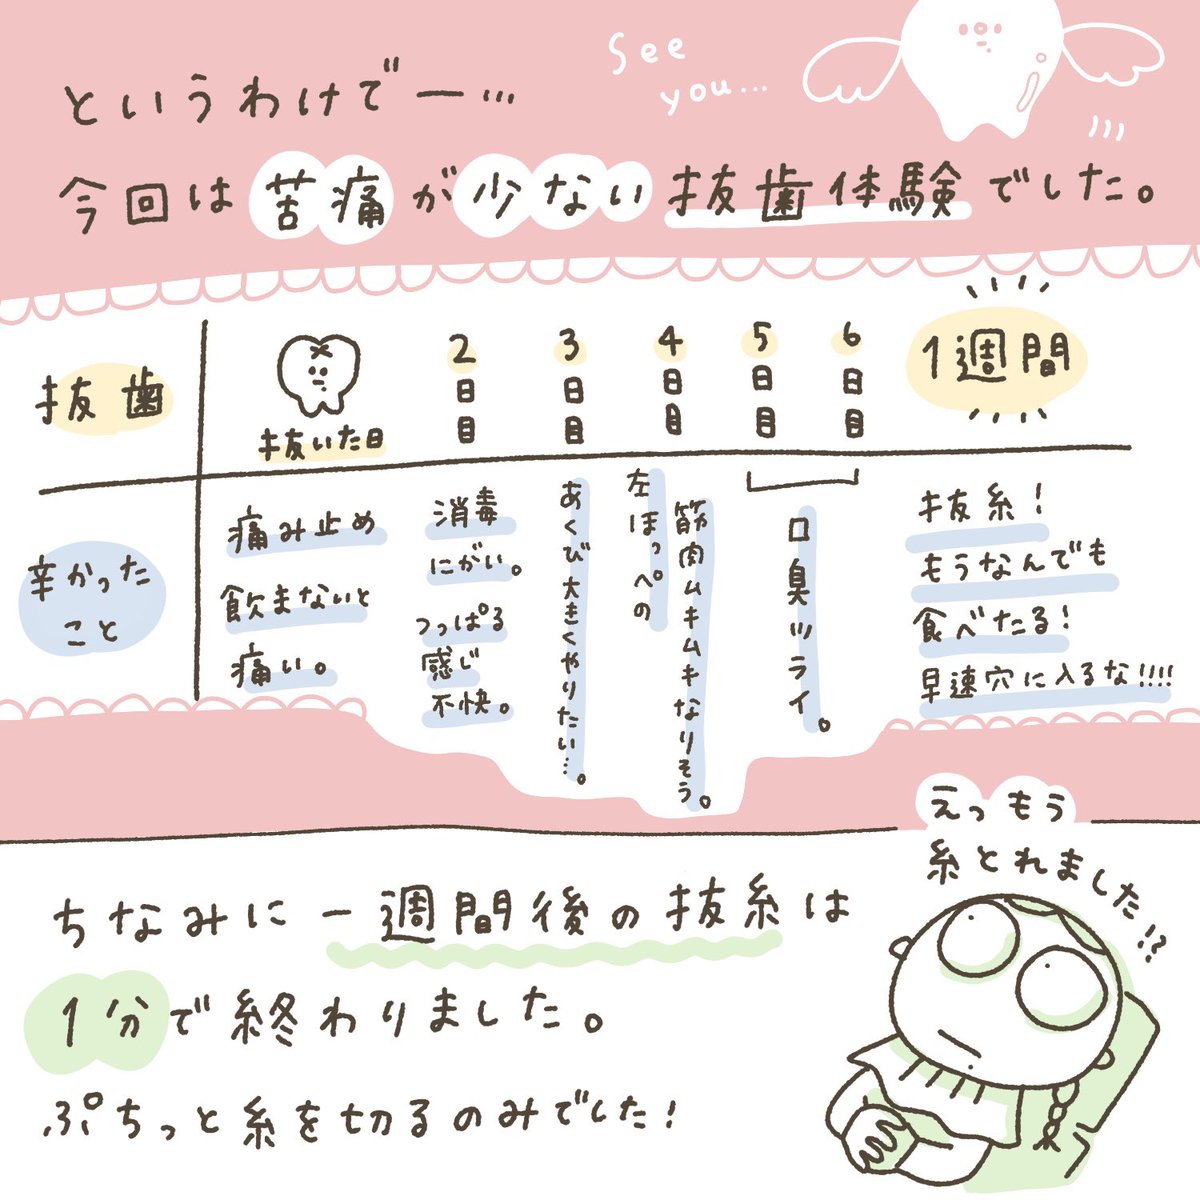 See
you...
というわけでー…
今回は苦痛が少ない抜歯体験でした。
抜歯
抜いた日
2日目
3日目
4日目
5日目
6日目
1週間
辛かった
こと
痛み止め
飲まないと
痛い。
消毒
にがい。
つっぱる
感じ
不快。
あくび大きくやりたい…。
左ほっぺの
筋肉ムキムキなりそう。
口臭ツライ。
抜糸!
もうなんでも
食べたる!
早速穴に入るな!!!!
えっもう
糸とれました!?
ちなみに一週間後の抜糸は
1分で終わりました。
ぷちっと糸を切るのみでした!